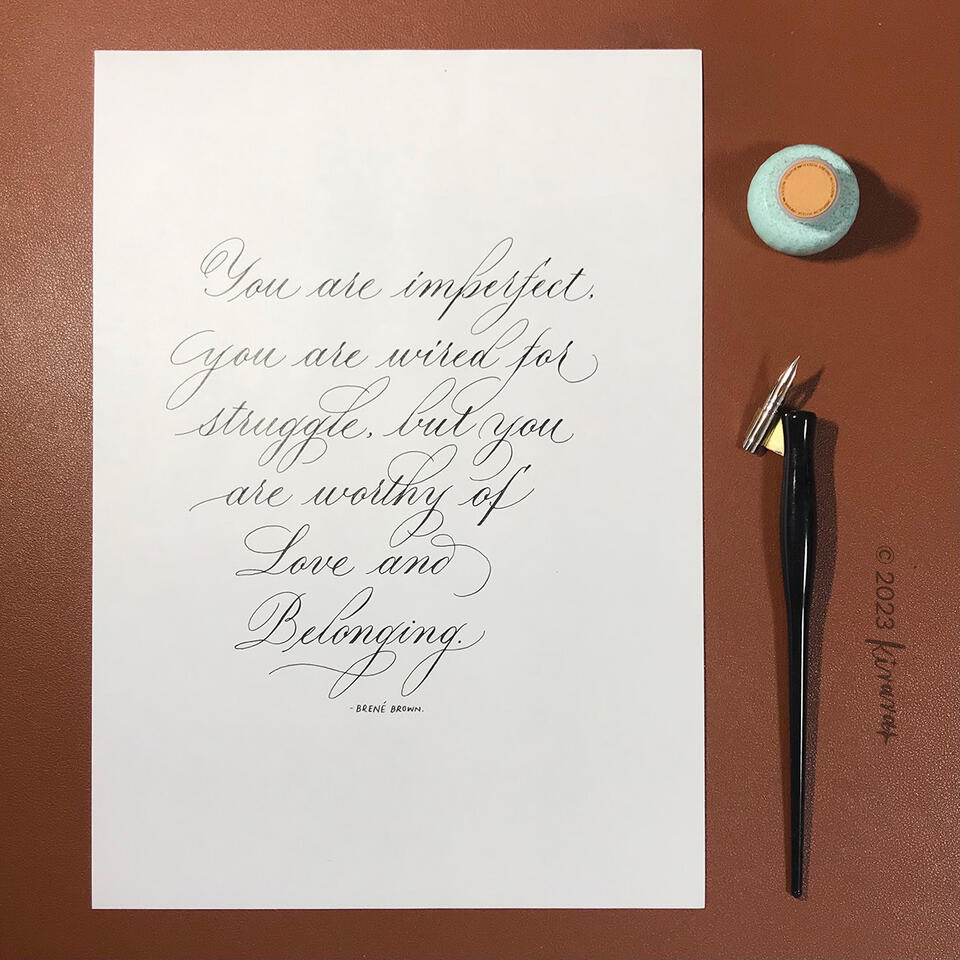 You are imperfect,
you are wired for
struggle, but you
are worthy of
Love and
Belonging.
-BRENÉ BROWN.
© 2023